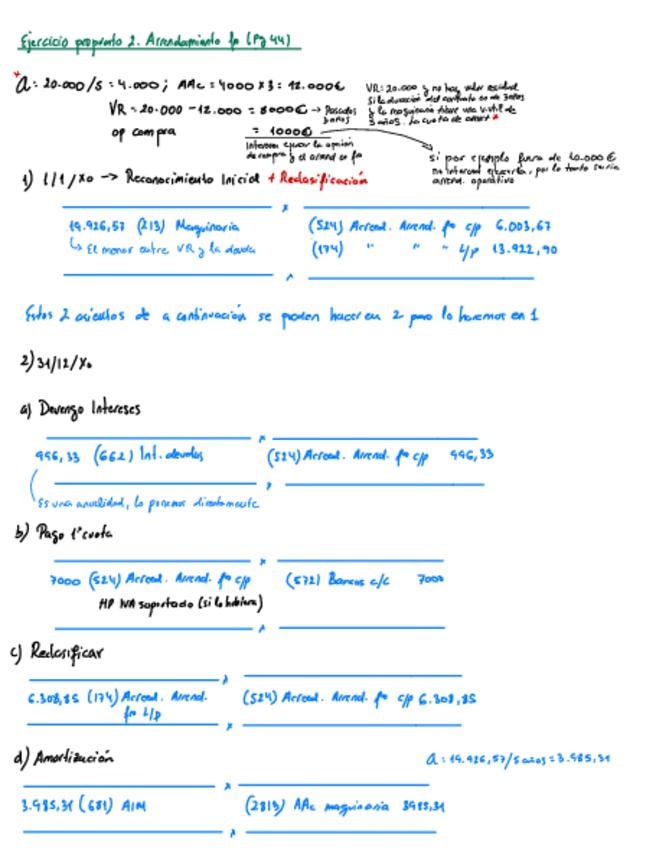 Ejercicio propuesto 2. Arrendamiento fro (Pg 44)
* a = 20.000/5 = 4.000 ; AAc = 4000 x 3 = 12.000€
VR = 20.000 - 12.000 = 8000€ → Pasados 3 años
op compra = 1000€
Interesa ejercer la opción de compra y el arrend es fro
VR = 20.000 y no hay valor residual
Si la duración del contrato es de 3 años
y la maquinaria tiene una v.útil de
3 años. La cuota de amort *
si por ejemplo fuera de 10.000€
no interesa ejercerla, por lo tanto sería
arrend. operativo
1) 1/1/X0 → Reconocimiento Inicial + Reclasificación
19.926,57 (213) Maquinaria (524) Acreed. Arrend. fro c/p 6.003,67
↳ El menor entre VR y la deuda (174) " " " L/p 13.922,90
Estos 2 asientos de a continuación se pueden hacer en 2 pero lo haremos en 1
2) 31/12/X0
a) Devengo Intereses
996,33 (662) Int. deudas (524) Acreed. Arrend. fro c/p 996,33
Es una anualidad, lo ponemos directamente
b) Pago 1ª cuota
7000 (524) Acreed. Arrend. fro c/p (572) Bancos c/c 7000
HP IVA soportado (si lo hubiera)
c) Reclasificar
6.308,85 (174) Acreed. Arrend. (524) Acreed. Arrend. fro c/p 6.308,85
fro L/p
d) Amortización a = 19.926,57/5 años = 3.985,31
3.985,31 (681) AIM (2813) AAc maquinaria 3985,31